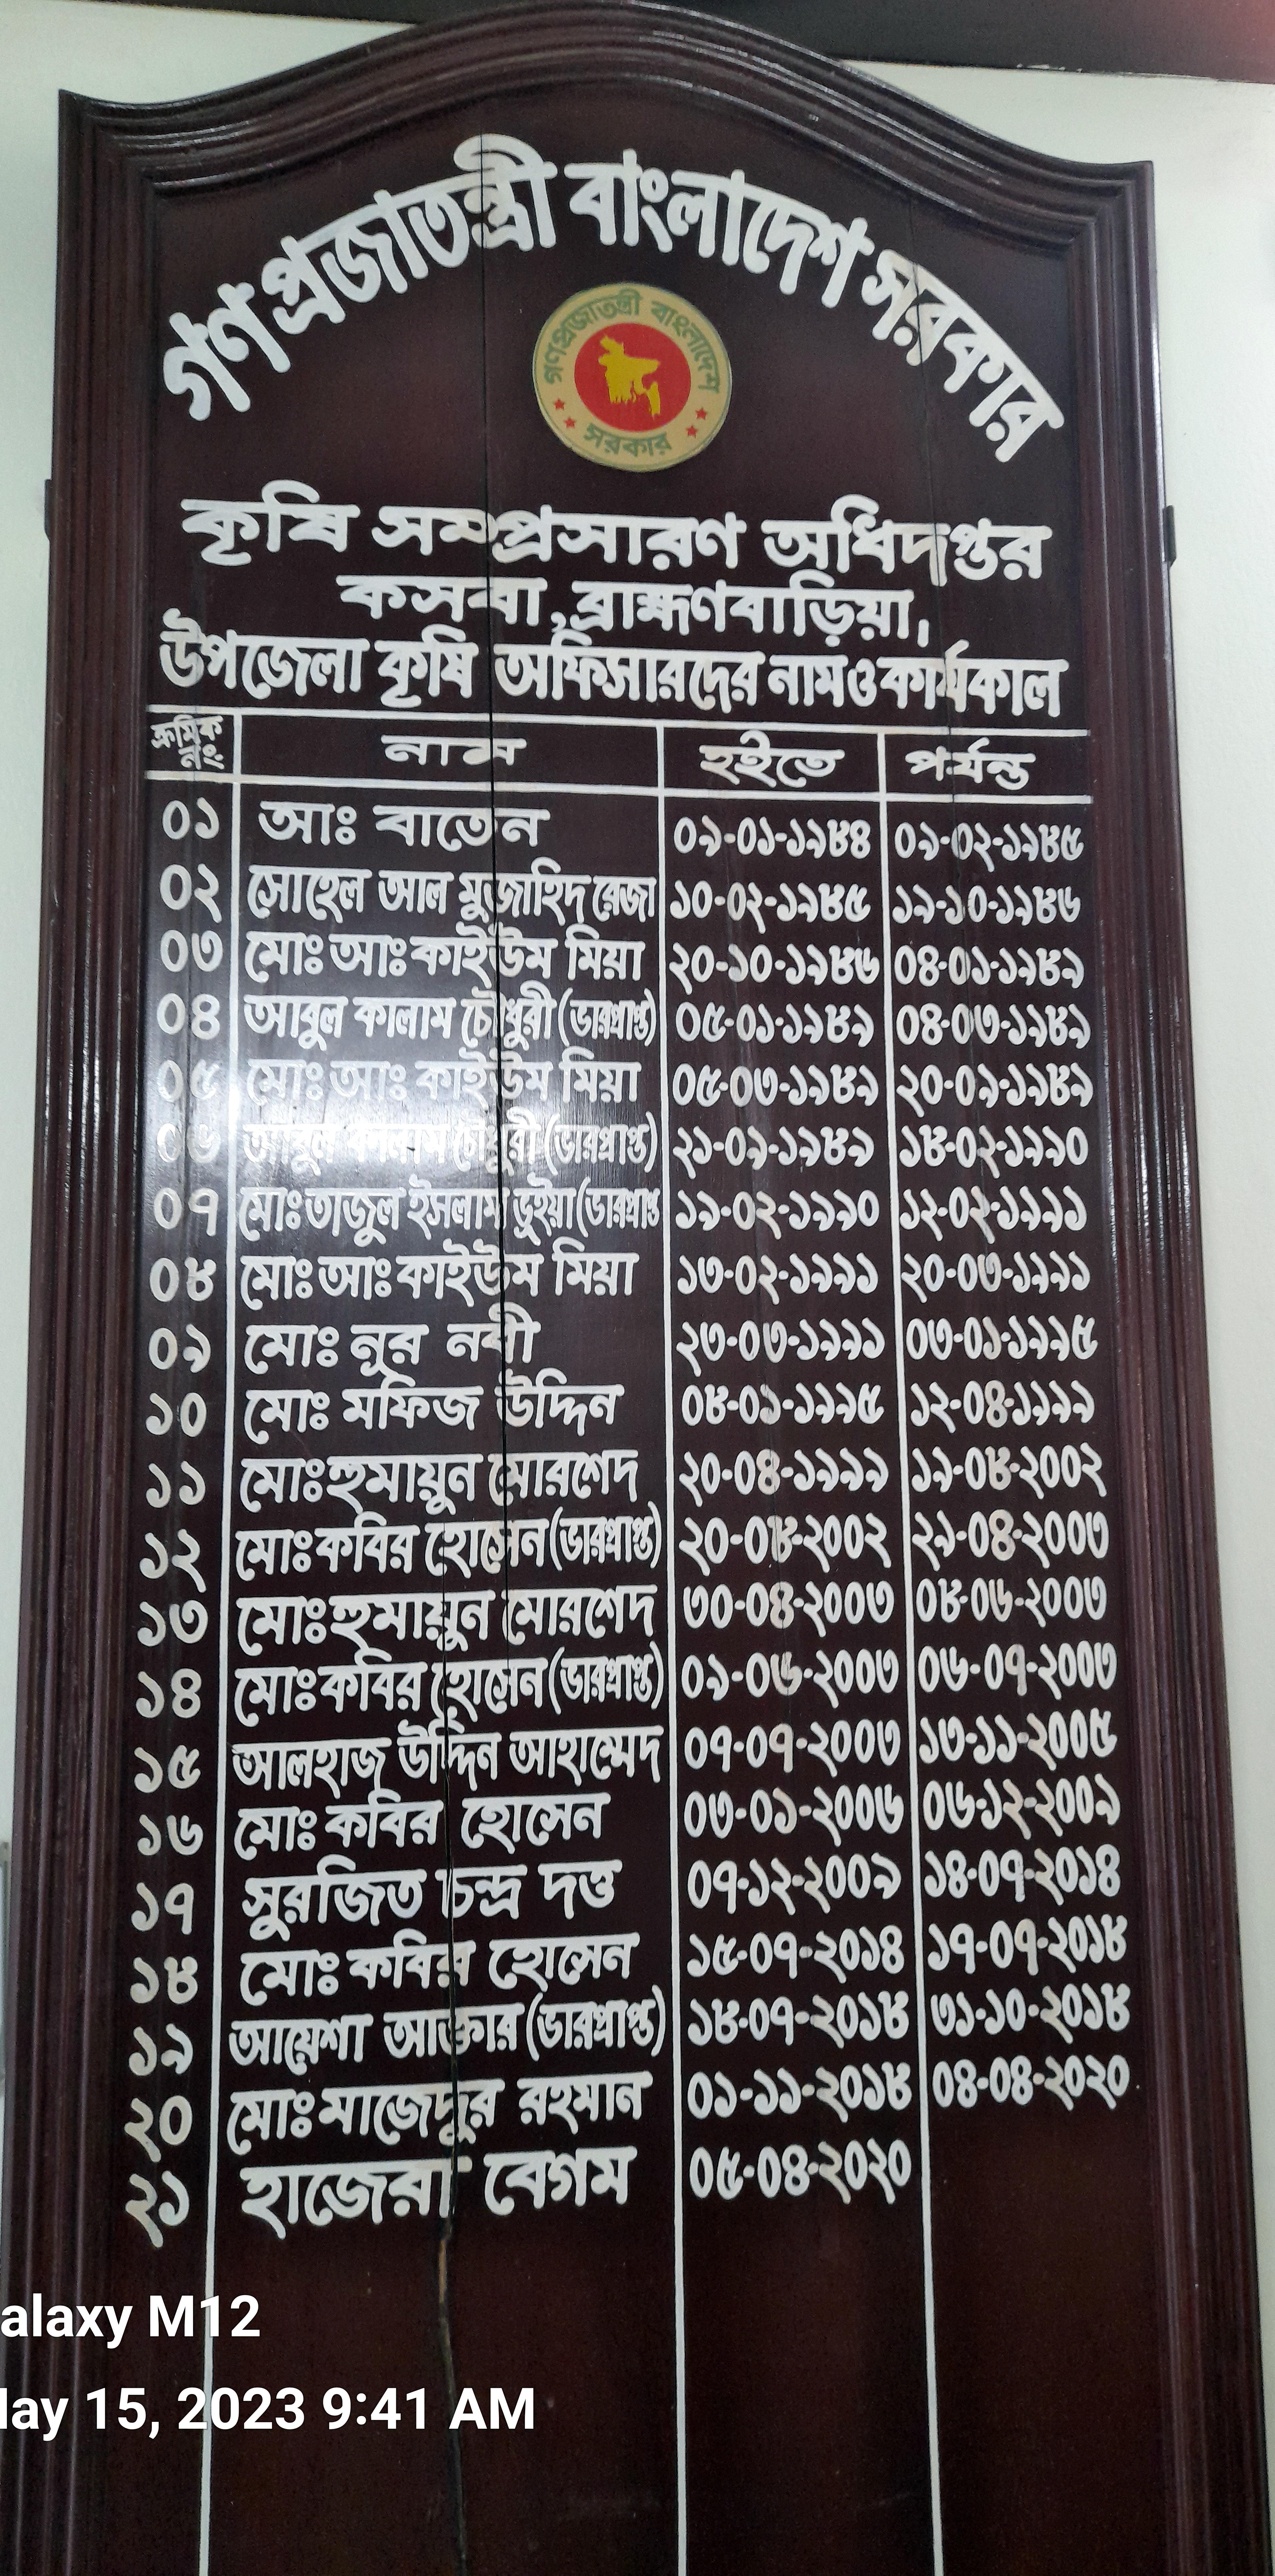 গণপ্রজাতন্ত্রী বাংলাদেশ সরকার
গণপ্রজাতন্ত্রী বাংলাদেশ
সরকার
কৃষি সমপ্রসারণ অধিদপ্তর
কসবা, ব্রাহ্মণবাড়িয়া,
উপজেলা কৃষি অফিসারদের নাম ও কার্যকাল
ক্রমিক নং নাম হইতে পর্যন্ত
০১ আঃ বাতেন ০৯-০১-১৯৮৪ ০৯-০২-১৯৮৫
০২ সোহেল আল মুজাহিদ রেজা ১০-০২-১৯৮৫ ১৯-১০-১৯৮৬
০৩ মোঃ আঃ কাইউম মিয়া ২০-১০-১৯৮৬ ০৪-০১-১৯৮৯
০৪ আবুল কালাম চৌধুরী (ভারপ্রাপ্ত) ০৫-০১-১৯৮৯ ০৪-০৩-১৯৮৯
০৫ মোঃ আঃ কাইউম মিয়া ০৫-০৩-১৯৮৯ ২০-০৯-১৯৮৯
০৬ আবুল কালাম চৌধুরী (ভারপ্রাপ্ত) ২১-০৯-১৯৮৯ ১৮-০২-১৯৯০
০৭ মোঃ তাজুল ইসলাম ভূইয়া (ভারপ্রাপ্ত ১৯-০২-১৯৯০ ১২-০২-১৯৯১
০৮ মোঃ আঃ কাইউম মিয়া ১৩-০২-১৯৯১ ২০-০৩-১৯৯১
০৯ মোঃ নুর নবী ২৩-০৩-১৯৯১ ০৩-০১-১৯৯৫
১০ মোঃ মফিজ উদ্দিন ০৮-০১-১৯৯৫ ১২-০৪-১৯৯৯
১১ মোঃ হুমায়ুন মোরশেদ ২০-০৪-১৯৯৯ ১৯-০৮-২০০২
১২ মোঃ কবির হোসেন (ভারপ্রাপ্ত) ২০-০৮-২০০২ ২৯-০৪-২০০৩
১৩ মোঃ হুমায়ুন মোরশেদ ৩০-০৪-২০০৩ ০৮-০৬-২০০৩
১৪ মোঃ কবির হোসেন (ভারপ্রাপ্ত) ০৯-০৬-২০০৩ ০৬-০৭-২০০৩
১৫ আলহাজ উদ্দিন আহাম্মেদ ০৭-০৭-২০০৩ ১৩-১১-২০০৫
১৬ মোঃ কবির হোসেন ০৩-০১-২০০৬ ০৬-১২-২০০৯
১৭ সুরজিত চন্দ্র দত্ত ০৭-১২-২০০৯ ১৪-০৭-২০১৪
১৮ মোঃ কবির হোসেন ১৫-০৭-২০১৪ ১৭-০৭-২০১৮
১৯ আয়েশা আক্তার (ভারপ্রাপ্ত) ১৮-০৭-২০১৮ ৩১-১০-২০১৮
২০ মোঃ মাজেদুর রহমান ০১-১১-২০১৮ ০৪-০৪-২০২০
২১ হাজেরা বেগম ০৫-০৪-২০২০
alaxy M12
ay 15, 2023 9:41 AM